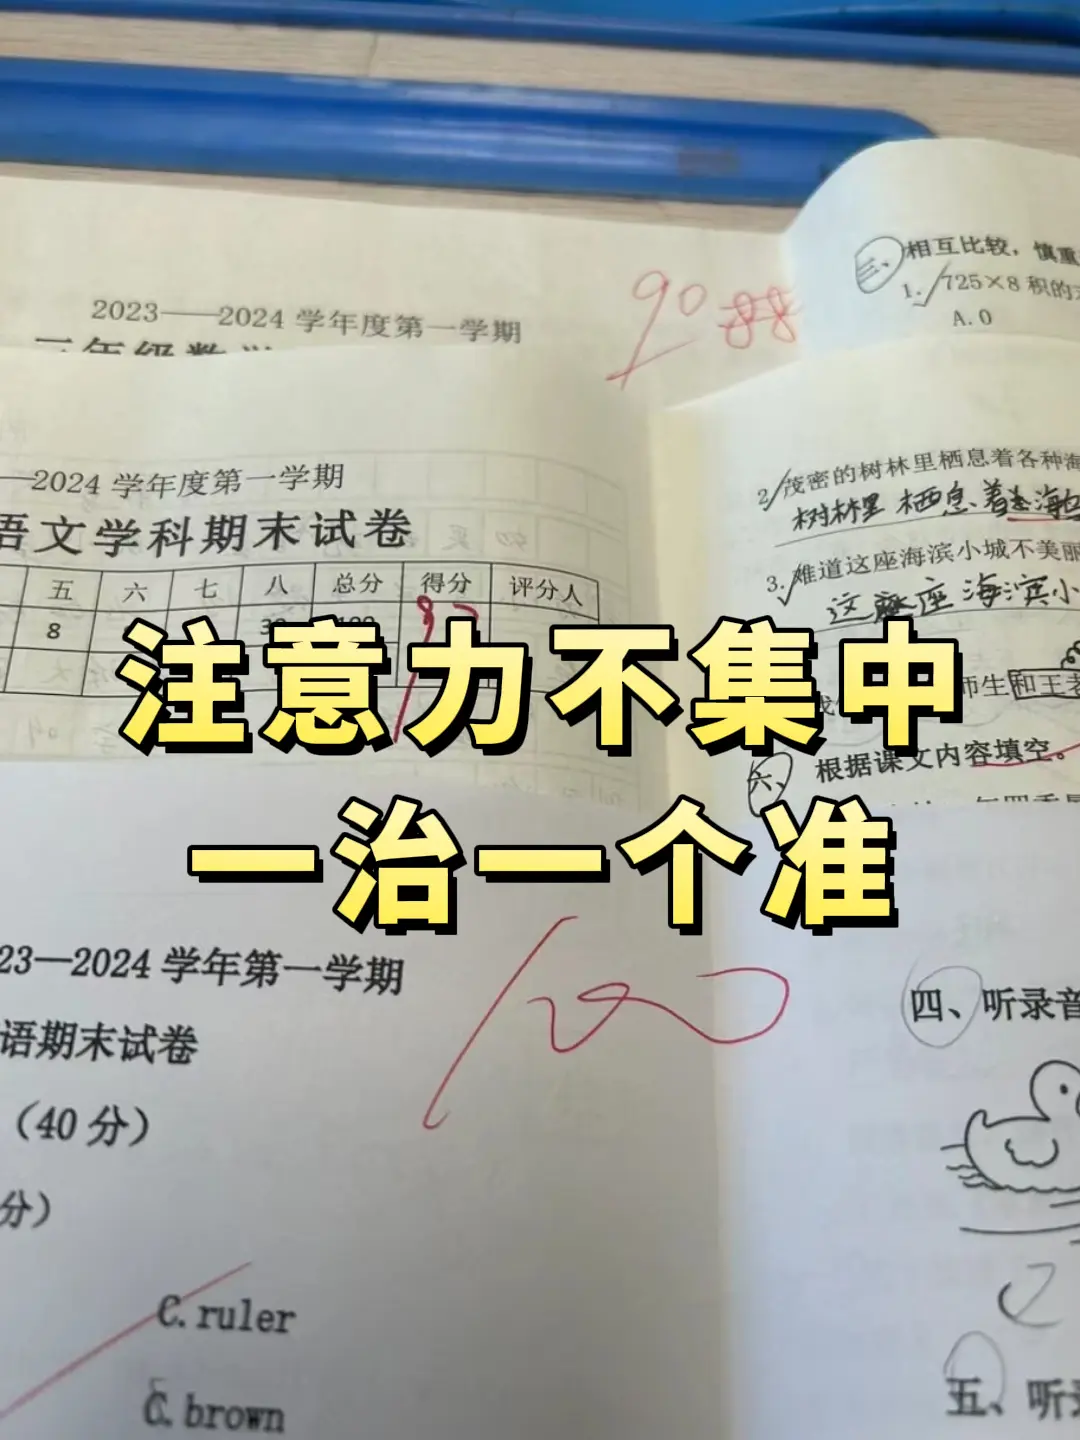 相互比较，慎重
三、
1. 725×8 积的
A.0
2023——2024 学年度第一学期
90 88
三年级数学
2 茂密的树林里栖息着各种海
树林里 栖息着
3. 难道这座海滨小城不美丽
这座海滨小
—2024 学年度第一学期
语文学科期末试卷
五 六 七 八 总分 得分 评分人
8 30 100
师生和王老
六、根据课文内容填空。
注意力不集中
一治一个准
23—2024 学年第一学期
语期末试卷
100
（40 分）
分）
四、听录音
C. ruler
C. brown
五、听录